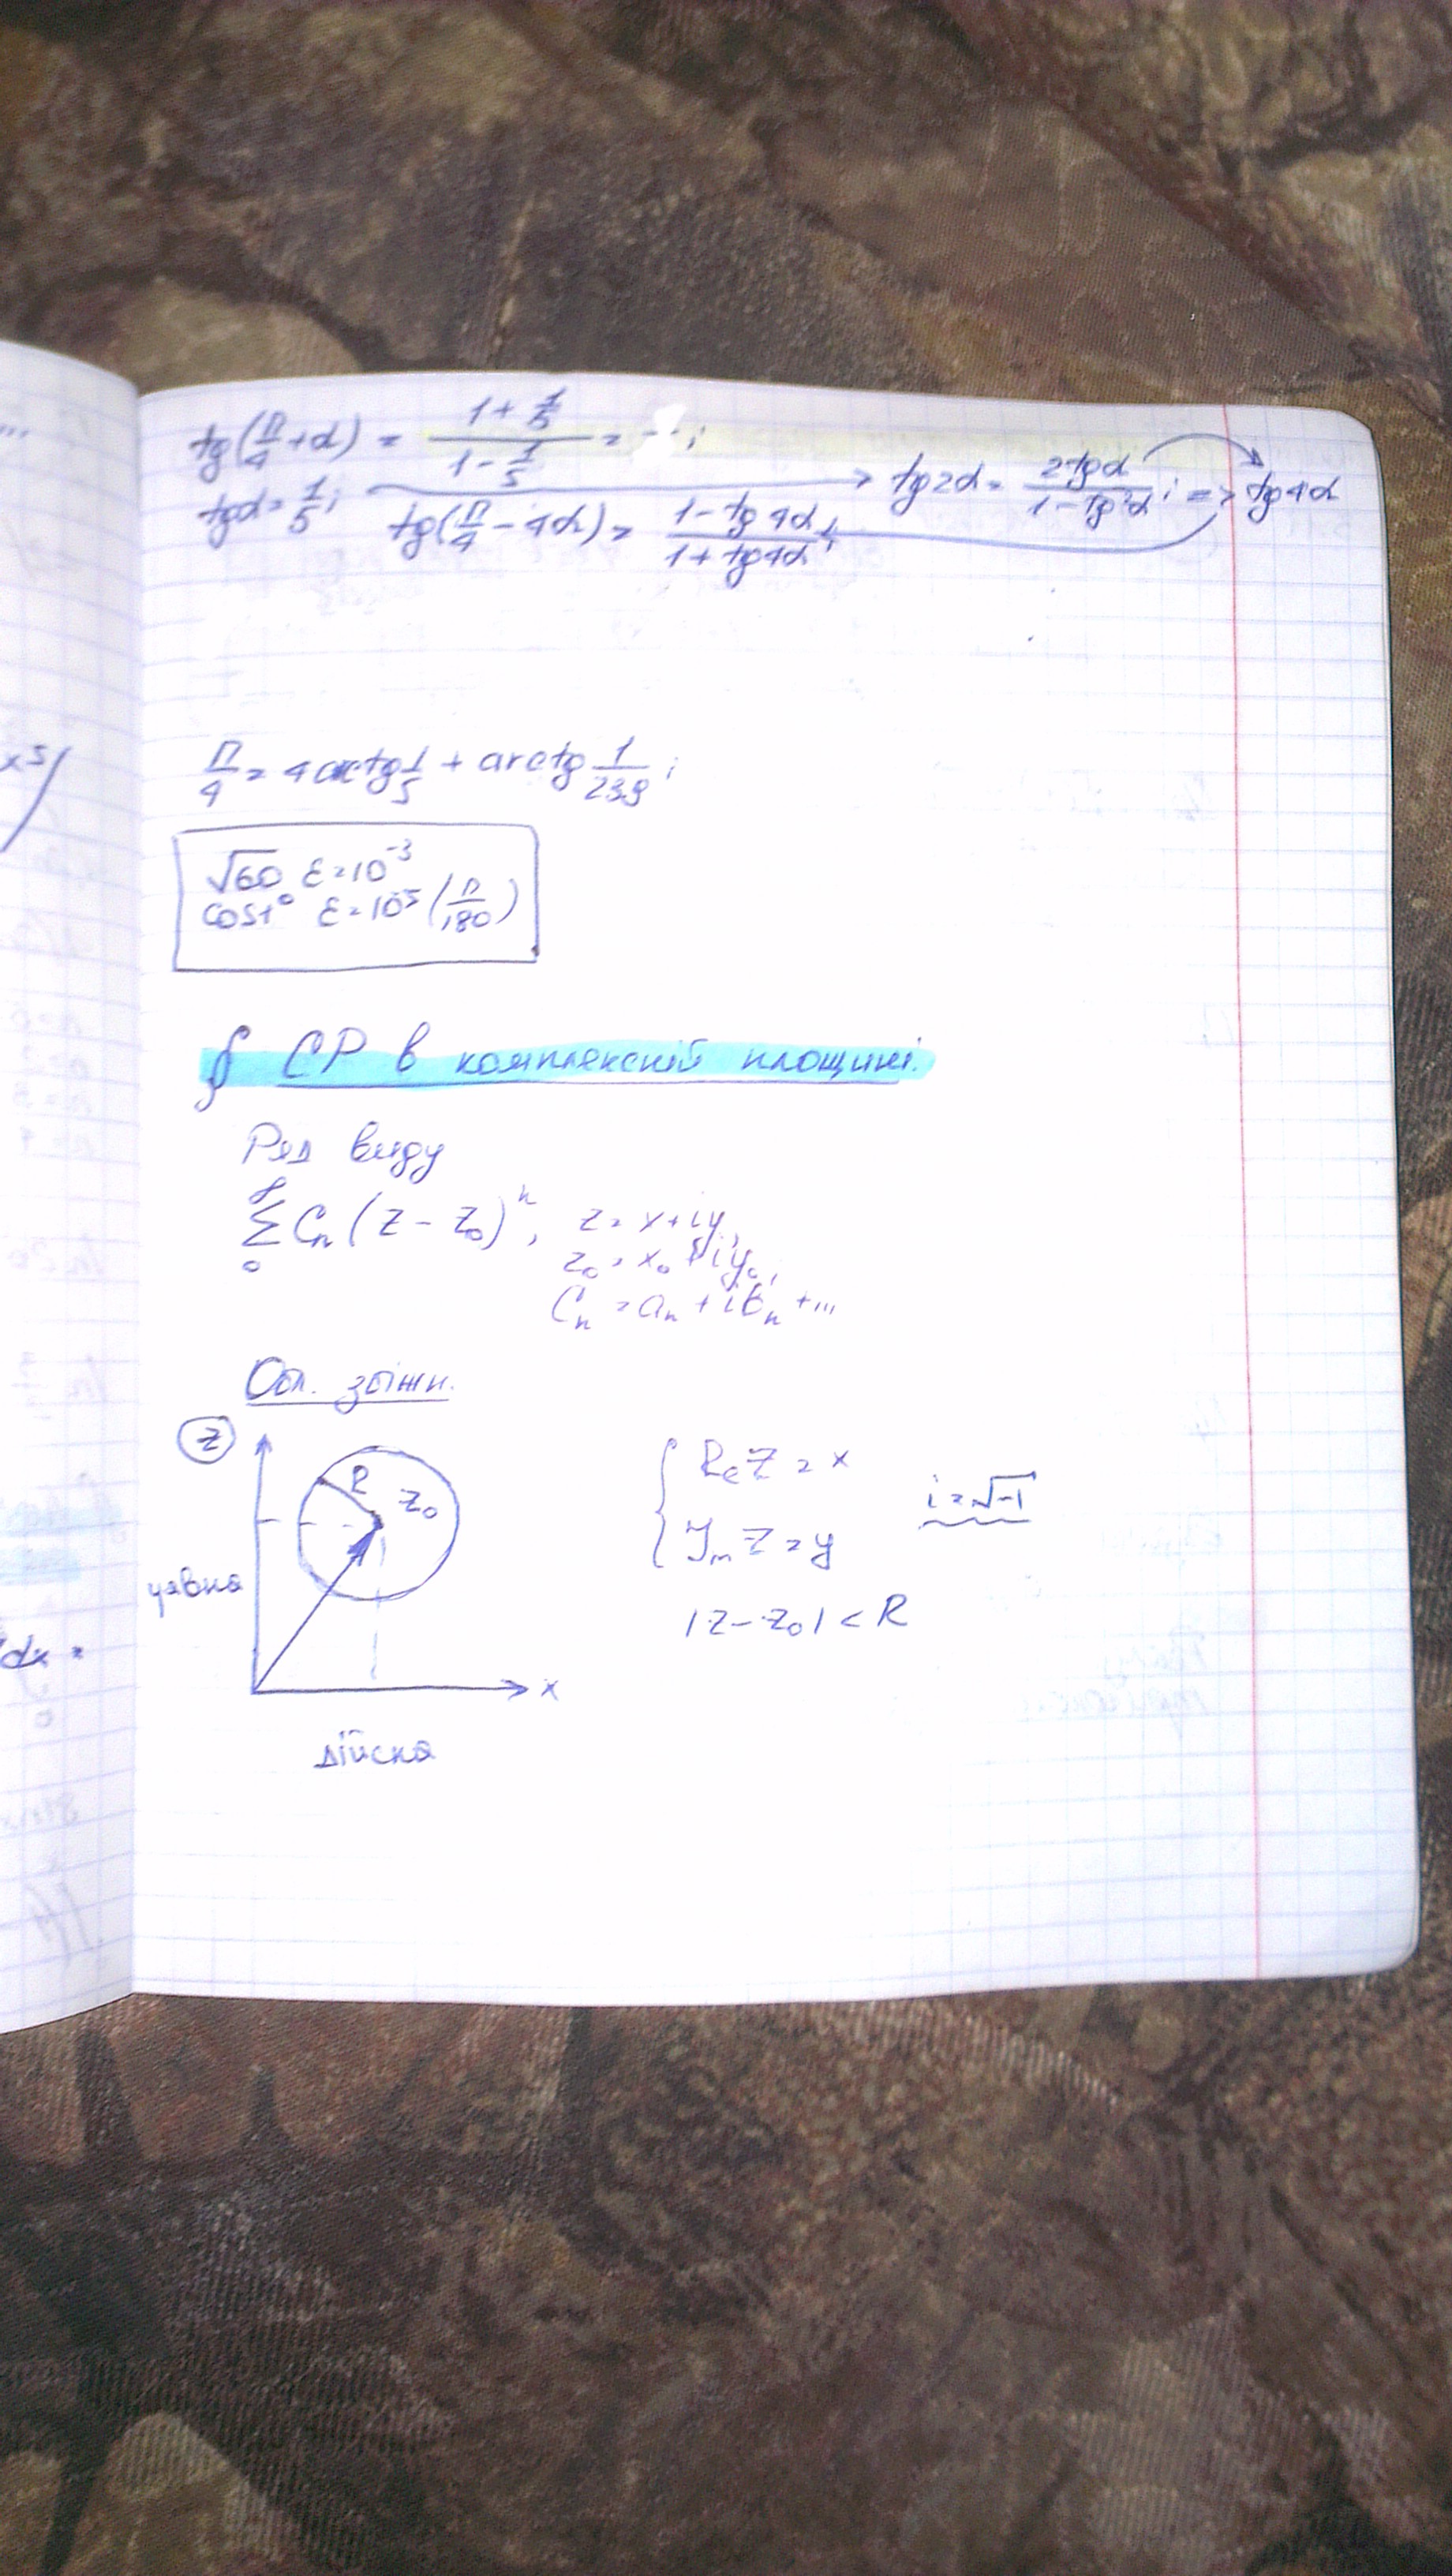 tg(π/4 + α) = (1 + 1/5)/(1 - 1/5) = ...;
tgα = 1/5; → tg2α = 2tgα/(1 - tg²α); => tg4α
tg(π/4 - 4α) = (1 - tg4α)/(1 + tg4α);
π/4 = 4arctg 1/5 + arctg 1/239;
√60 ε = 10⁻³
cos1° ε = 10⁻⁵ (π/180)
§ СР в комплексній площині.
Ряд виду
∑₀^∞ Cₙ(z - z₀)ⁿ, z = x + iy,
z₀ = x₀ + iy₀;
Cₙ = aₙ + ibₙ + ...
Обл. збіжн.
z
R z₀
Re z = x
i = √-1
Im z = y
уявна
|z - z₀| < R
x
дійсна
x⁵/
dx =